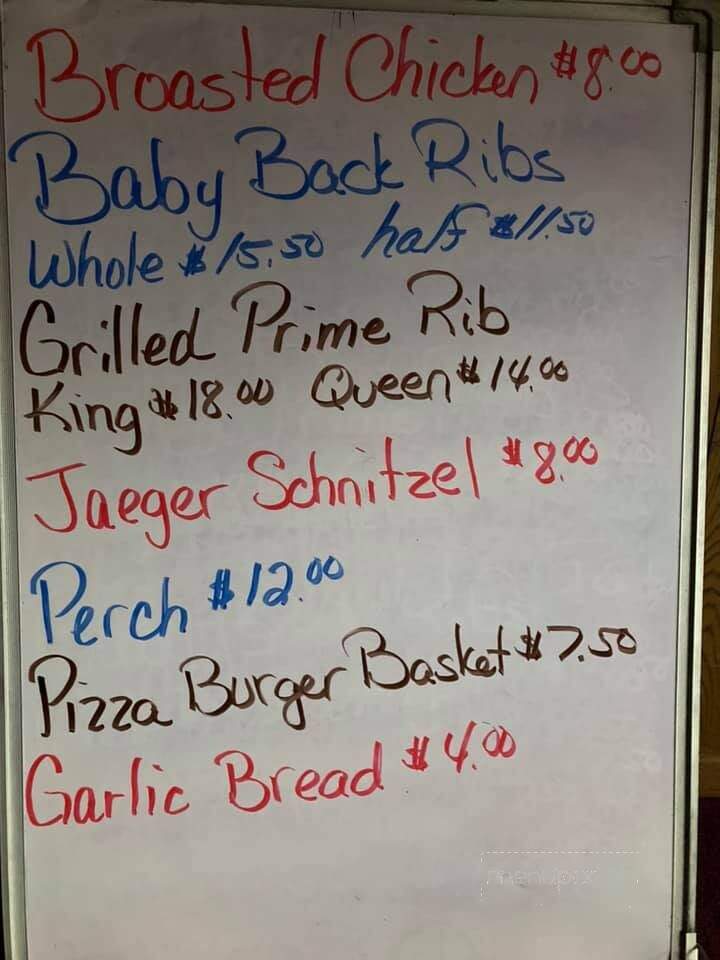 Broasted Chicken $8.00
Baby Back Ribs
Whole $15.50 half $11.50
Grilled Prime Rib
King $18.00 Queen $14.00
Jaeger Schnitzel $8.00
Perch $12.00
Pizza Burger Basket $7.50
Garlic Bread $4.00
menupix